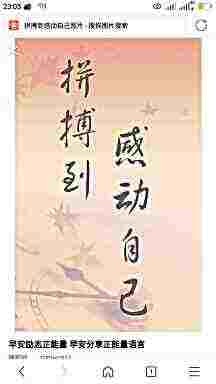 23:03
拼搏到感动自己图片-搜狗图片搜索
拼搏到
感动自己
早安励志正能量 早安分享正能量语言